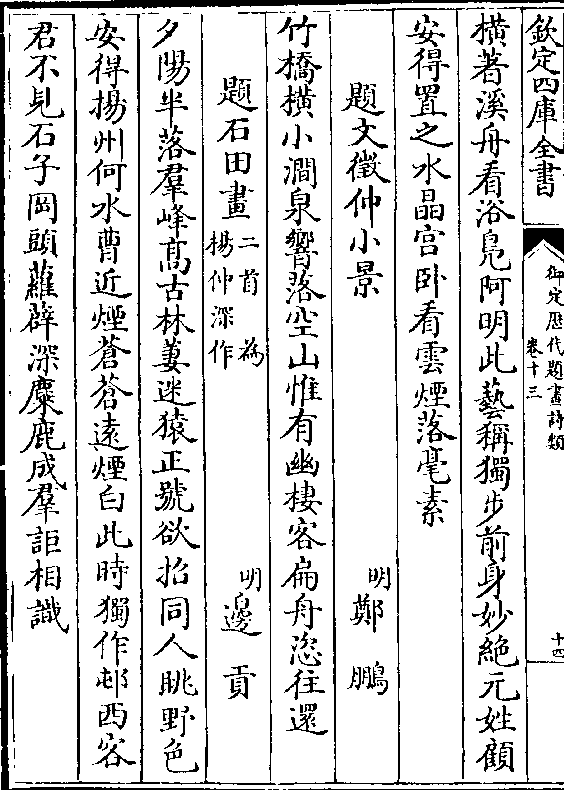 欽定四庫全書
御定歷代題畫詩類
卷十三
十四
橫著溪舟看浴鳧阿明此藝稱獨步前身妙絕元姓顧
安得置之水晶宫卧看雲煙落毫素
題文徵仲小景
明鄭鵬
竹橋橫小澗泉響落空山惟有幽棲客扁舟恣往還
題石田畫二首為楊仲深作
明邊貢
夕陽半落羣峰髙古林萋迷猿正號欲招同人眺野色
安得揚州何水曹近煙蒼蒼遠煙白此時獨作邨西客
君不見石子岡頭蘿薜深麋鹿成羣詎相識